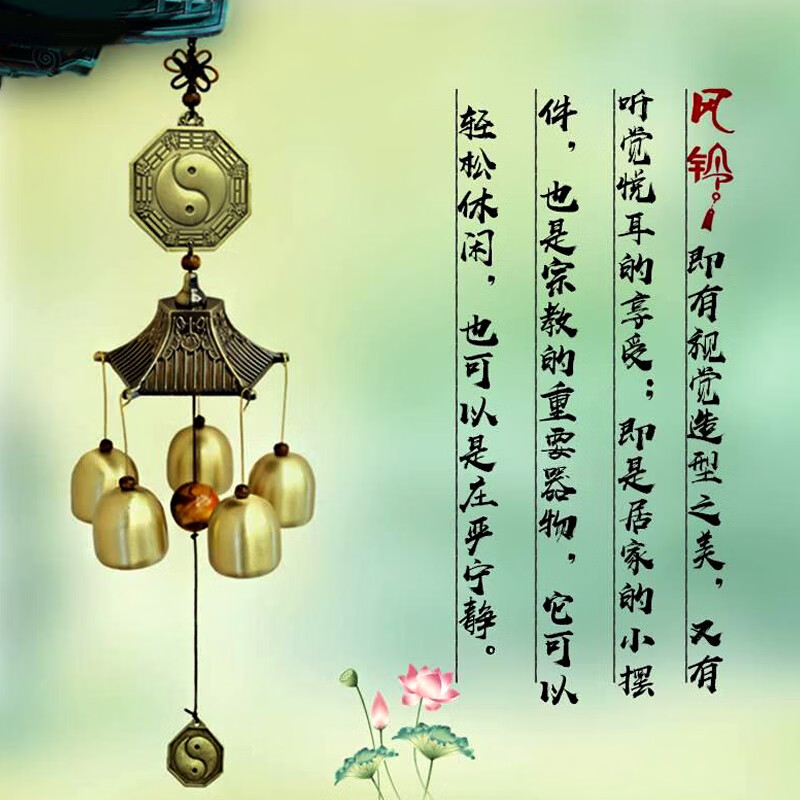 风铃。即有视觉造型之美，又有
听觉悦耳的享受；即是居家的小摆
件，也是宗教的重要器物，它可以
轻松休闲，也可以是庄严宁静。